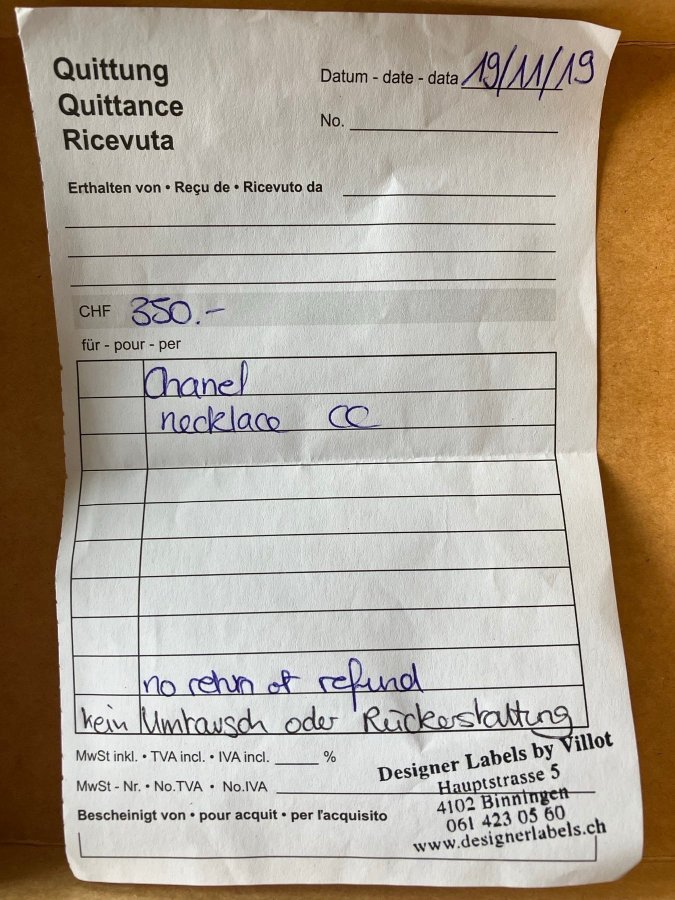 Quittung
Quittance
Ricevuta
Datum - date - data 19/11/19
No.
Erthalten von • Reçu de • Ricevuto da
CHF 350.-
für - pour - per
Chanel
necklace CC
no return of refund
kein Umtausch oder Rückerstattung
MwSt inkl. • TVA incl. • IVA incl. %
MwSt - Nr. • No.TVA • No.IVA
Bescheinigt von • pour acquit • per l'acquisito
Designer Labels by Villot
Hauptstrasse 5
4102 Binningen
061 423 05 60
www.designerlabels.ch